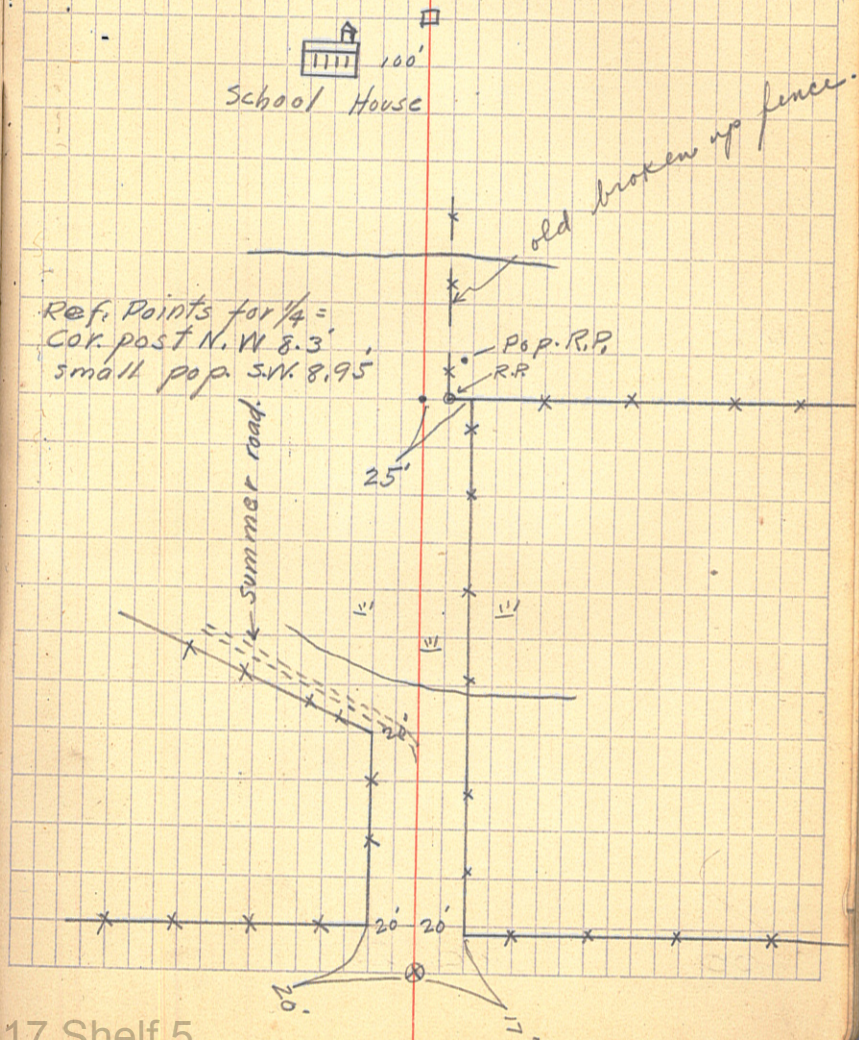 100'
School House
old broken up fence.
Ref. Points for 1/4 =
Cor. post N. W 8.3'
small pop. S.W. 8.95'
Pop. R.P.
R.P.
25'
Summer road.
20' 20'
20'
17'
17 Shelf 5